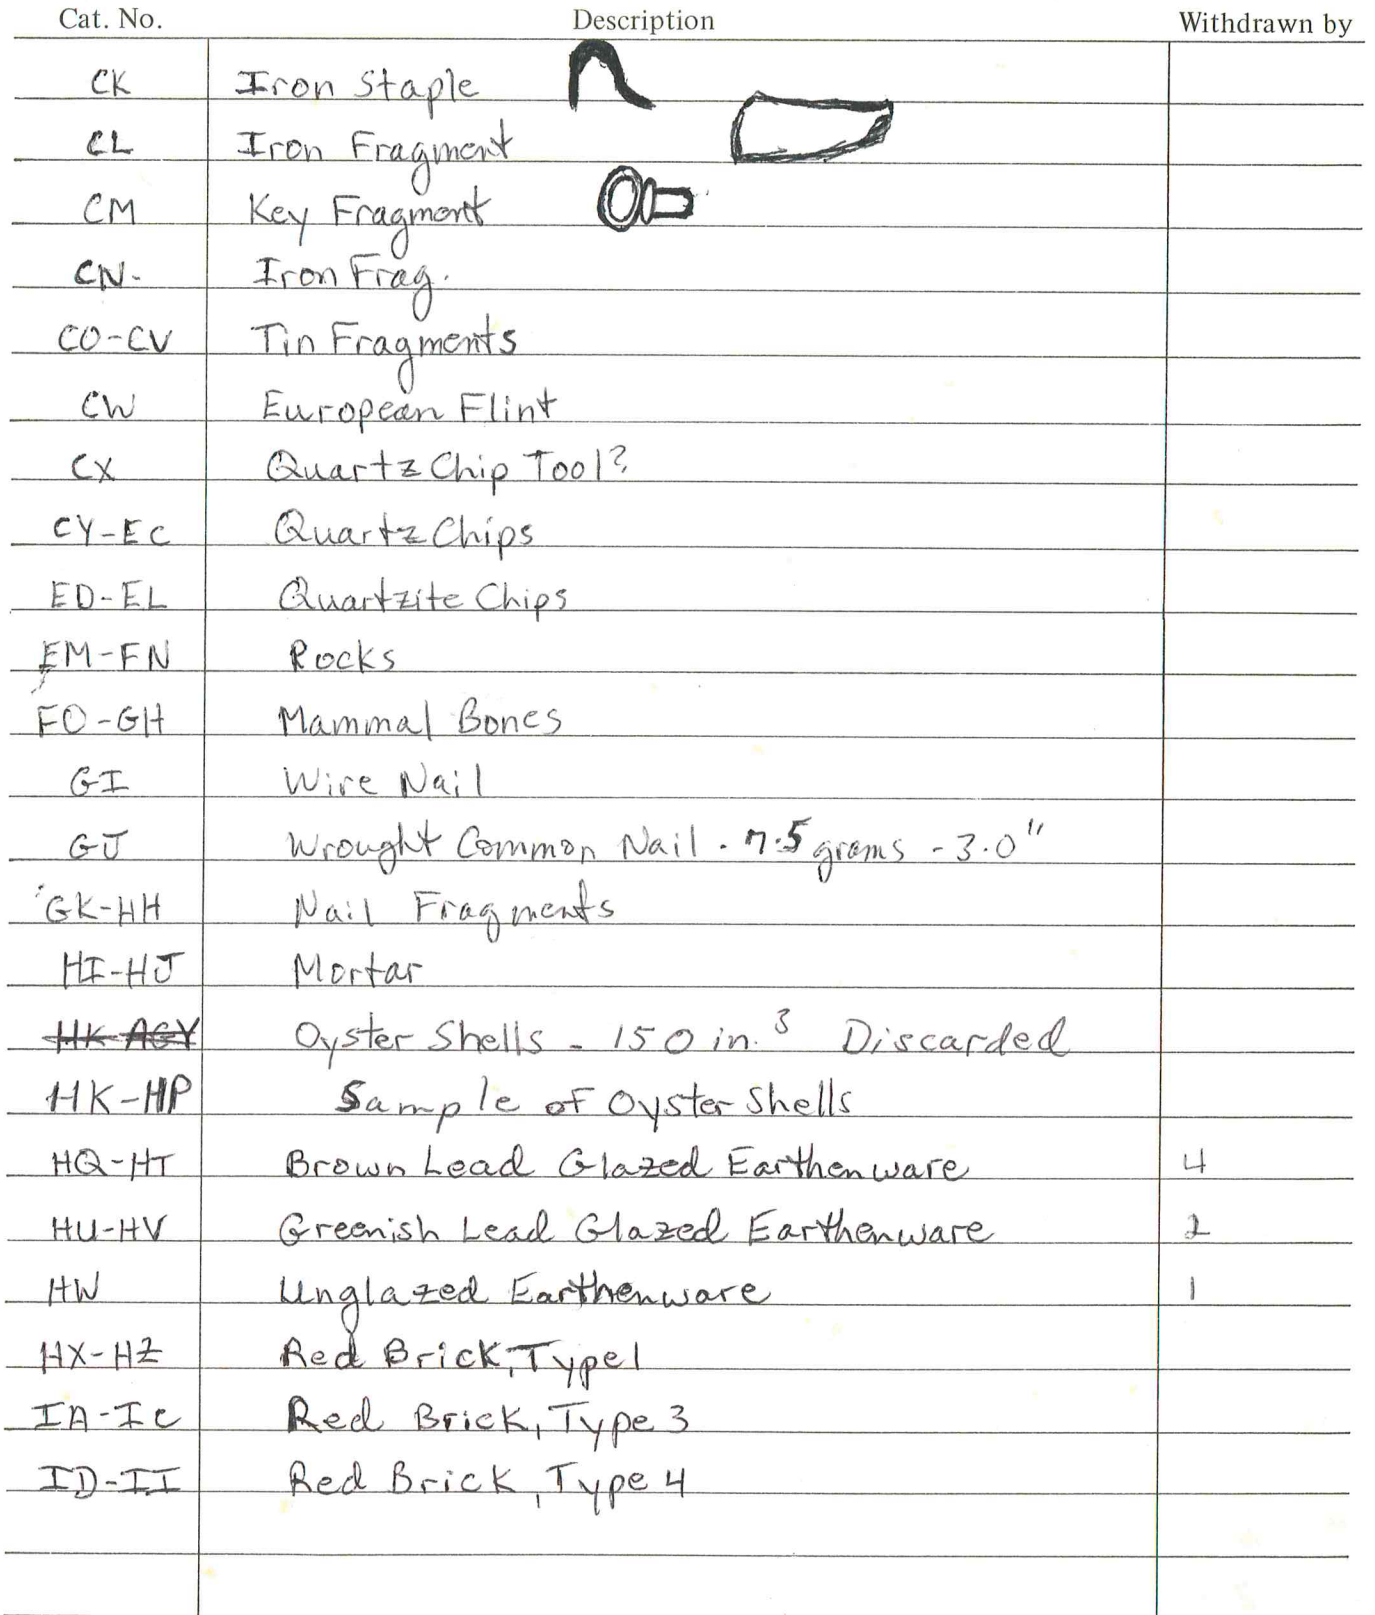 Cat. No. Description Withdrawn by
CK Iron Staple
CL Iron Fragment
CM Key Fragment
CN- Iron Frag.
CO-CV Tin Fragments
CW European Flint
CX Quartz Chip Tool?
CY-EC Quartz Chips
ED-EL Quartzite Chips
EM-FN Rocks
FO-GH Mammal Bones
GI Wire Nail
GJ Wrought Common Nail. 7.5 grams - 3.0"
GK-HH Nail Fragments
HI-HJ Mortar
HK-AGY Oyster Shells - 150 in.³ Discarded
HK-HP Sample of Oyster Shells
HQ-HT Brown Lead Glazed Earthenware 4
HU-HV Greenish Lead Glazed Earthenware 2
HW Unglazed Earthenware 1
HX-HZ Red Brick, Type 1
IA-IC Red Brick, Type 3
ID-II Red Brick, Type 4